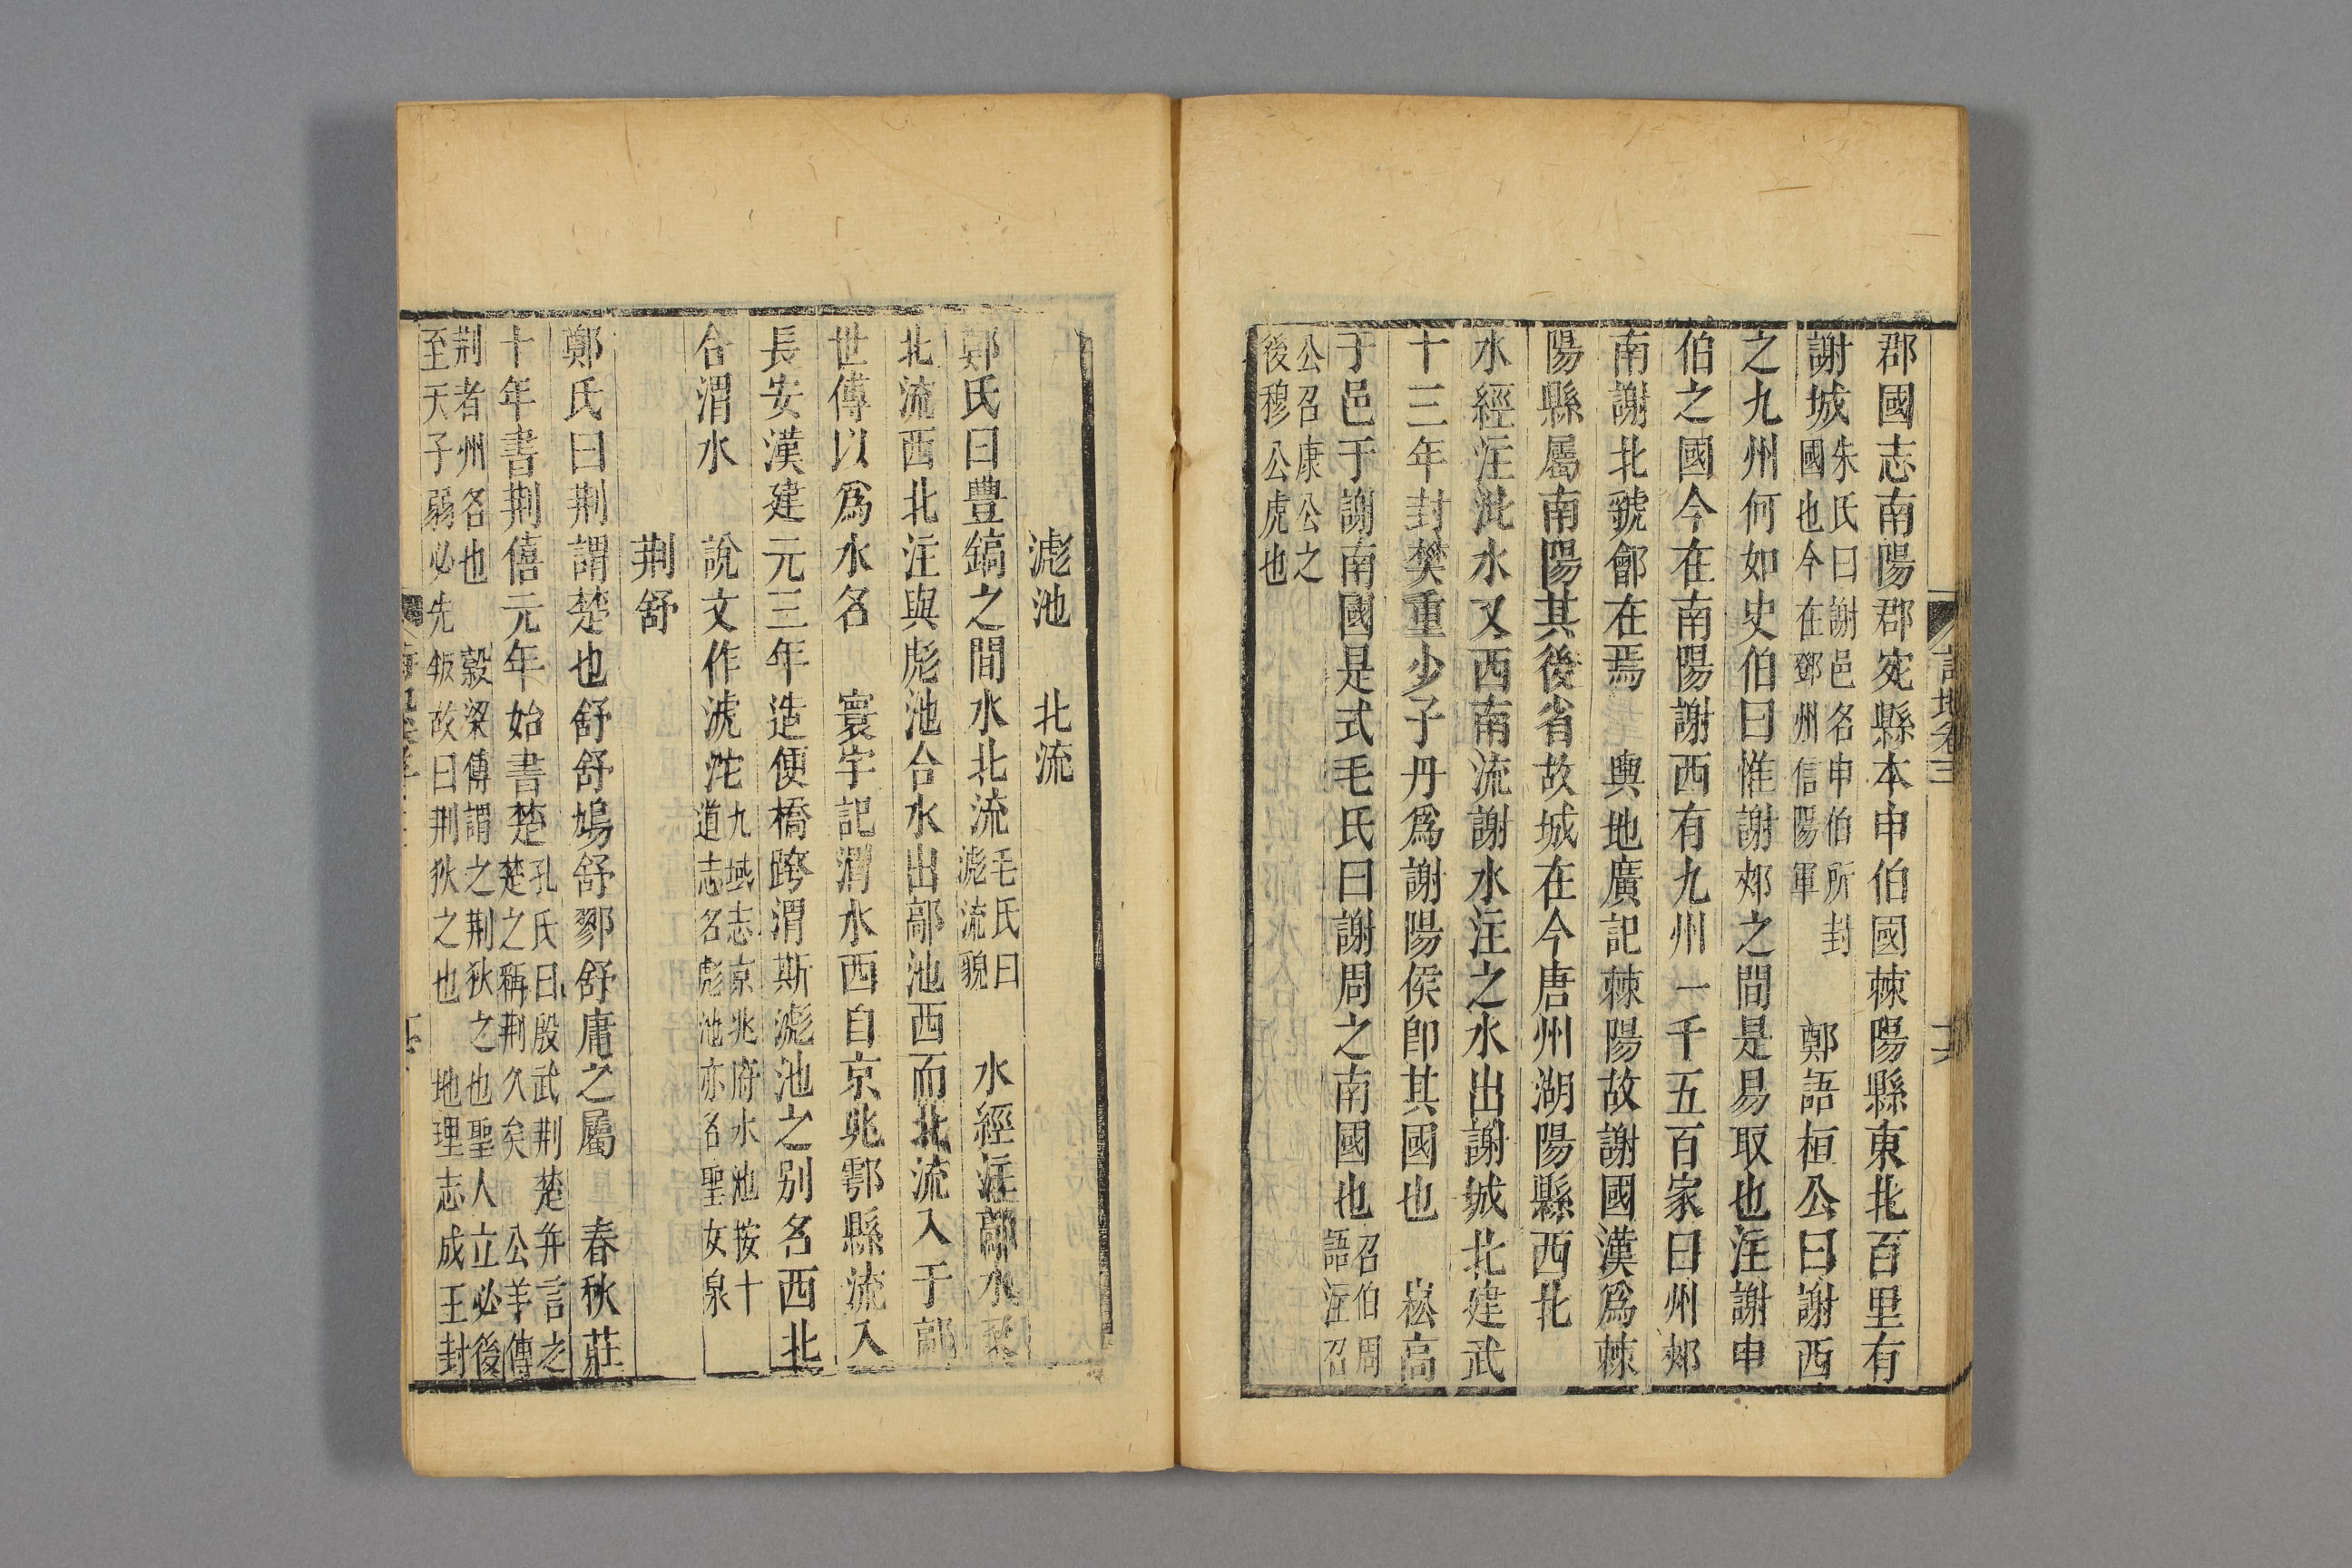 詩地卷三
十六
郡國志南陽郡宛縣本申伯國棘陽縣東北百里有
謝城朱氏曰謝邑名申伯所封國也今在鄧州信陽軍　鄭語桓公曰謝西
之九州何如史伯曰惟謝郟之間是易取也注謝申
伯之國今在南陽謝西有九州一千五百家曰州郟
南謝北虢鄶在焉　輿地廣記棘陽故謝國漢爲棘
陽縣屬南陽其後省故城在今唐州湖陽縣西北
水經注泚水又西南流謝水注之水出謝城北建武
十三年封樊重少子丹爲謝陽侯卽其國也　崧高
于邑于謝南國是式毛氏曰謝周之南國也召伯周語注召
公召康公之後穆公虎也
滮池　北流
鄭氏曰豐鎬之間水北流毛氏曰滮流貌　水經注鄗水
北流西北注與彪池合水出鄗池西而北流入于鄗
世傳以爲水名　寰宇記渭水西自京兆鄠縣流入
長安漢建元三年造便橋跨渭斯滮池之別名西北
合渭水　說文作淲沱九域志京兆府水池按十道志名彪池亦名聖女泉
荆舒
鄭氏曰荆謂楚也舒舒鳩舒鄝舒庸之屬　春秋莊
十年書荆僖元年始書楚孔氏曰殷武荆楚幷言之楚之稱荆久矣　公羊傳
荆者州名也　穀梁傳謂之荆狄之也聖人立必後至天子弱必先叛故曰荆狄之也　地理志成王封